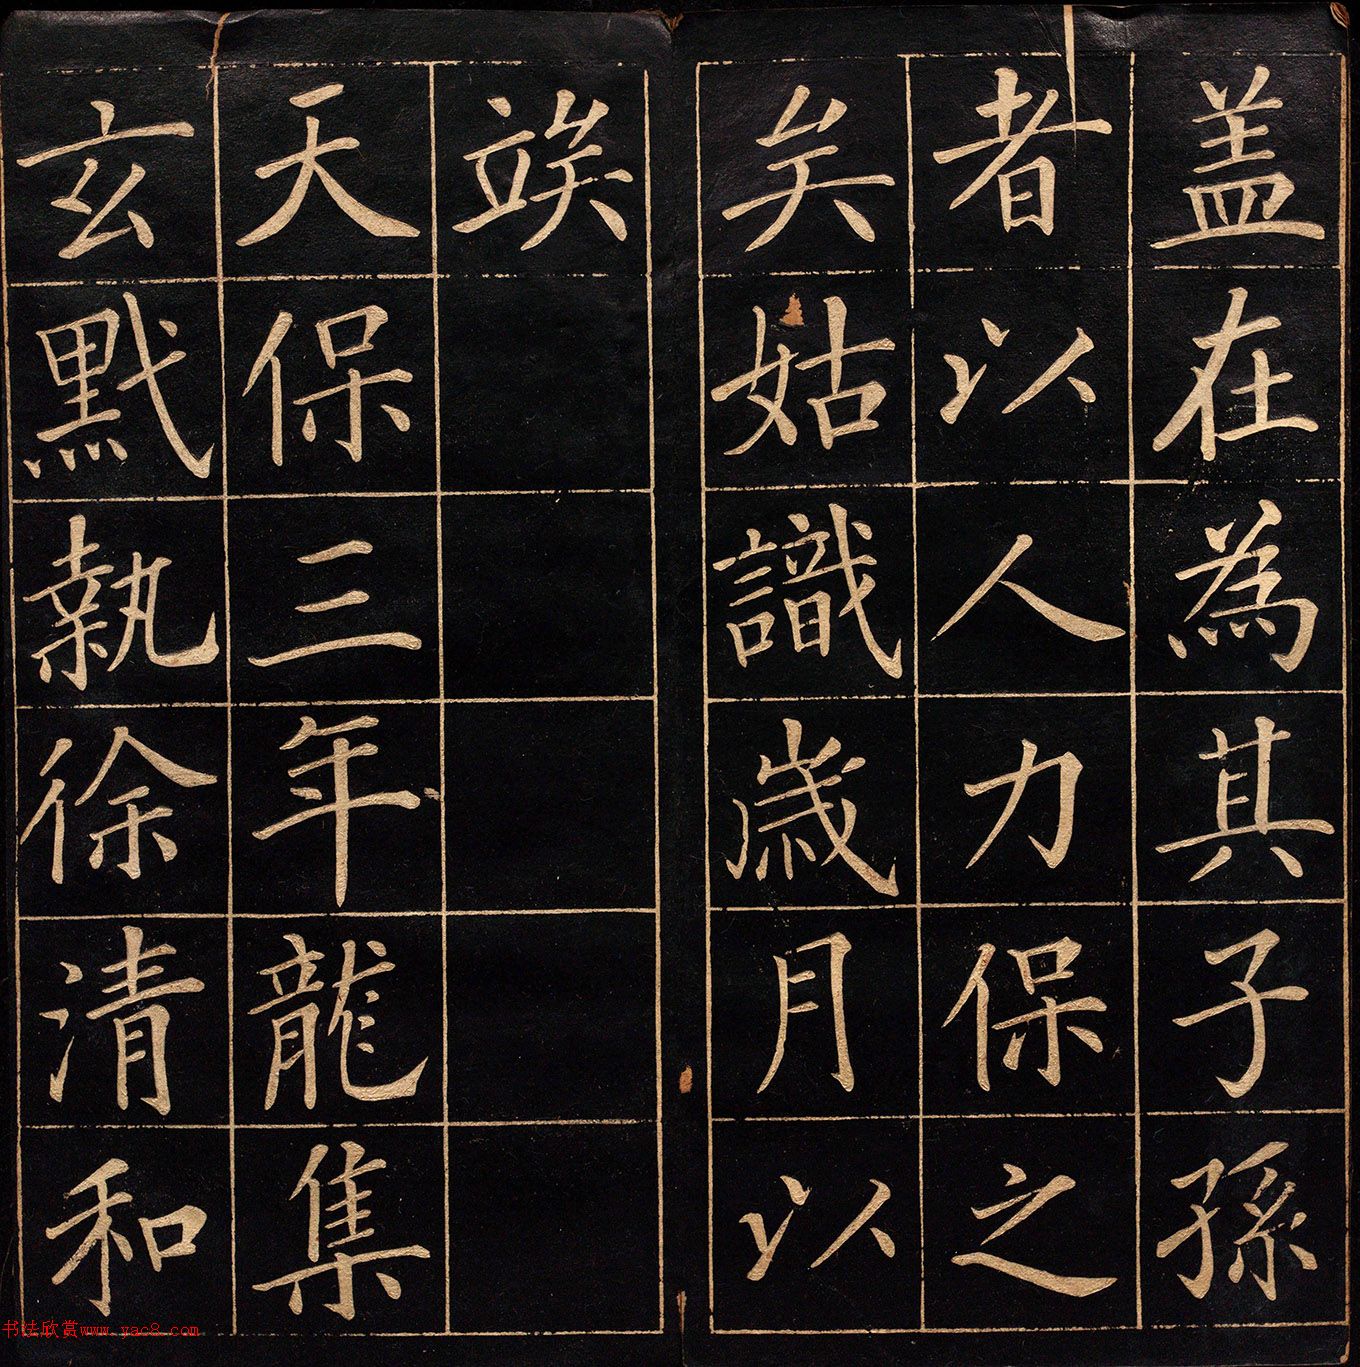 盖在為其子孫
者以人力保之
矣姑識歲月以
竢
天保三年龍集
玄黓執徐清和
书法欣赏www.yac8.com